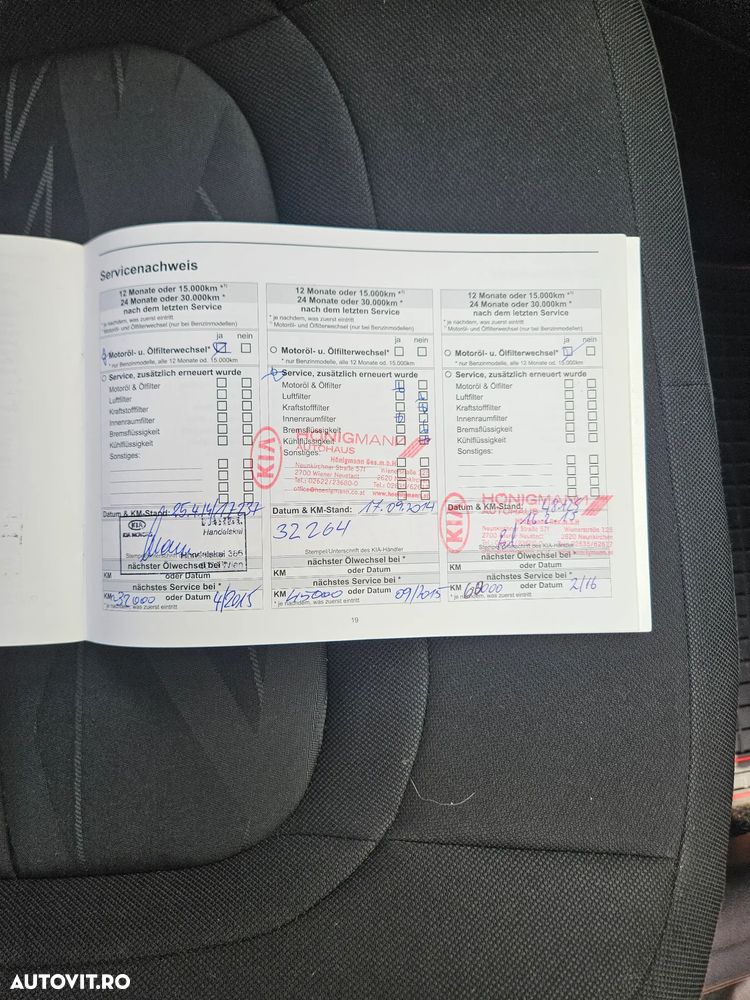 Servicenachweis
12 Monate oder 15.000km *¹⁾
24 Monate oder 30.000km *
nach dem letzten Service
* je nachdem, was zuerst eintritt
¹⁾ Motoröl- und Ölfilterwechsel (nur bei Benzinmodellen)
ja nein
Motoröl- u. Ölfilterwechsel*
* nur Benzinmodelle, alle 12 Monate od. 15.000km
Service, zusätzlich erneuert wurde
Motoröl & Ölfilter
Luftfilter
Kraftstofffilter
Innenraumfilter
Bremsflüssigkeit
Kühlflüssigkeit
Sonstiges:
Datum & KM-Stand: 25.4.14/17.237
KIA
Handelskai
Handelskai 365
nächster Ölwechsel bei *
KM oder Datum
nächstes Service bei *
KM 32000 oder Datum 4/2015
* je nachdem, was zuerst eintritt
12 Monate oder 15.000km *¹⁾
24 Monate oder 30.000km *
nach dem letzten Service
* je nachdem, was zuerst eintritt
¹⁾ Motoröl- und Ölfilterwechsel (nur bei Benzinmodellen)
ja nein
Motoröl- u. Ölfilterwechsel*
* nur Benzinmodelle, alle 12 Monate od. 15.000km
Service, zusätzlich erneuert wurde
Motoröl & Ölfilter
Luftfilter
Kraftstofffilter
Innenraumfilter
Bremsflüssigkeit
Kühlflüssigkeit
Sonstiges:
KIA HÖNIGMANN
AUTOHAUS
Hönigmann Ges.m.b.H
Neunkirchner Straße 571
2700 Wiener Neustadt
Tel.: 02622/23680-0
office@hoenigmann.co.at
Datum & KM-Stand: 17.09.2014
32264
Stempel/Unterschrift des KIA-Händler
nächster Ölwechsel bei *
KM oder Datum
nächstes Service bei *
KM 45000 oder Datum 09/2015
* je nachdem, was zuerst eintritt
12 Monate oder 15.000km *¹⁾
24 Monate oder 30.000km *
nach dem letzten Service
* je nachdem, was zuerst eintritt
¹⁾ Motoröl- und Ölfilterwechsel (nur bei Benzinmodellen)
ja nein
Motoröl- u. Ölfilterwechsel*
* nur Benzinmodelle, alle 12 Monate od. 15.000km
Service, zusätzlich erneuert wurde
Motoröl & Ölfilter
Luftfilter
Kraftstofffilter
Innenraumfilter
Bremsflüssigkeit
Kühlflüssigkeit
Sonstiges:
KIA HÖNIGMANN
AUTOHAUS
Datum & KM-Stand:
2700 Wiener Neustadt
Stempel/Unterschrift des KIA-Händler
nächster Ölwechsel bei *
KM oder Datum
nächstes Service bei *
KM oder Datum 2/16
* je nachdem, was zuerst eintritt
19
AUTOVIT.RO